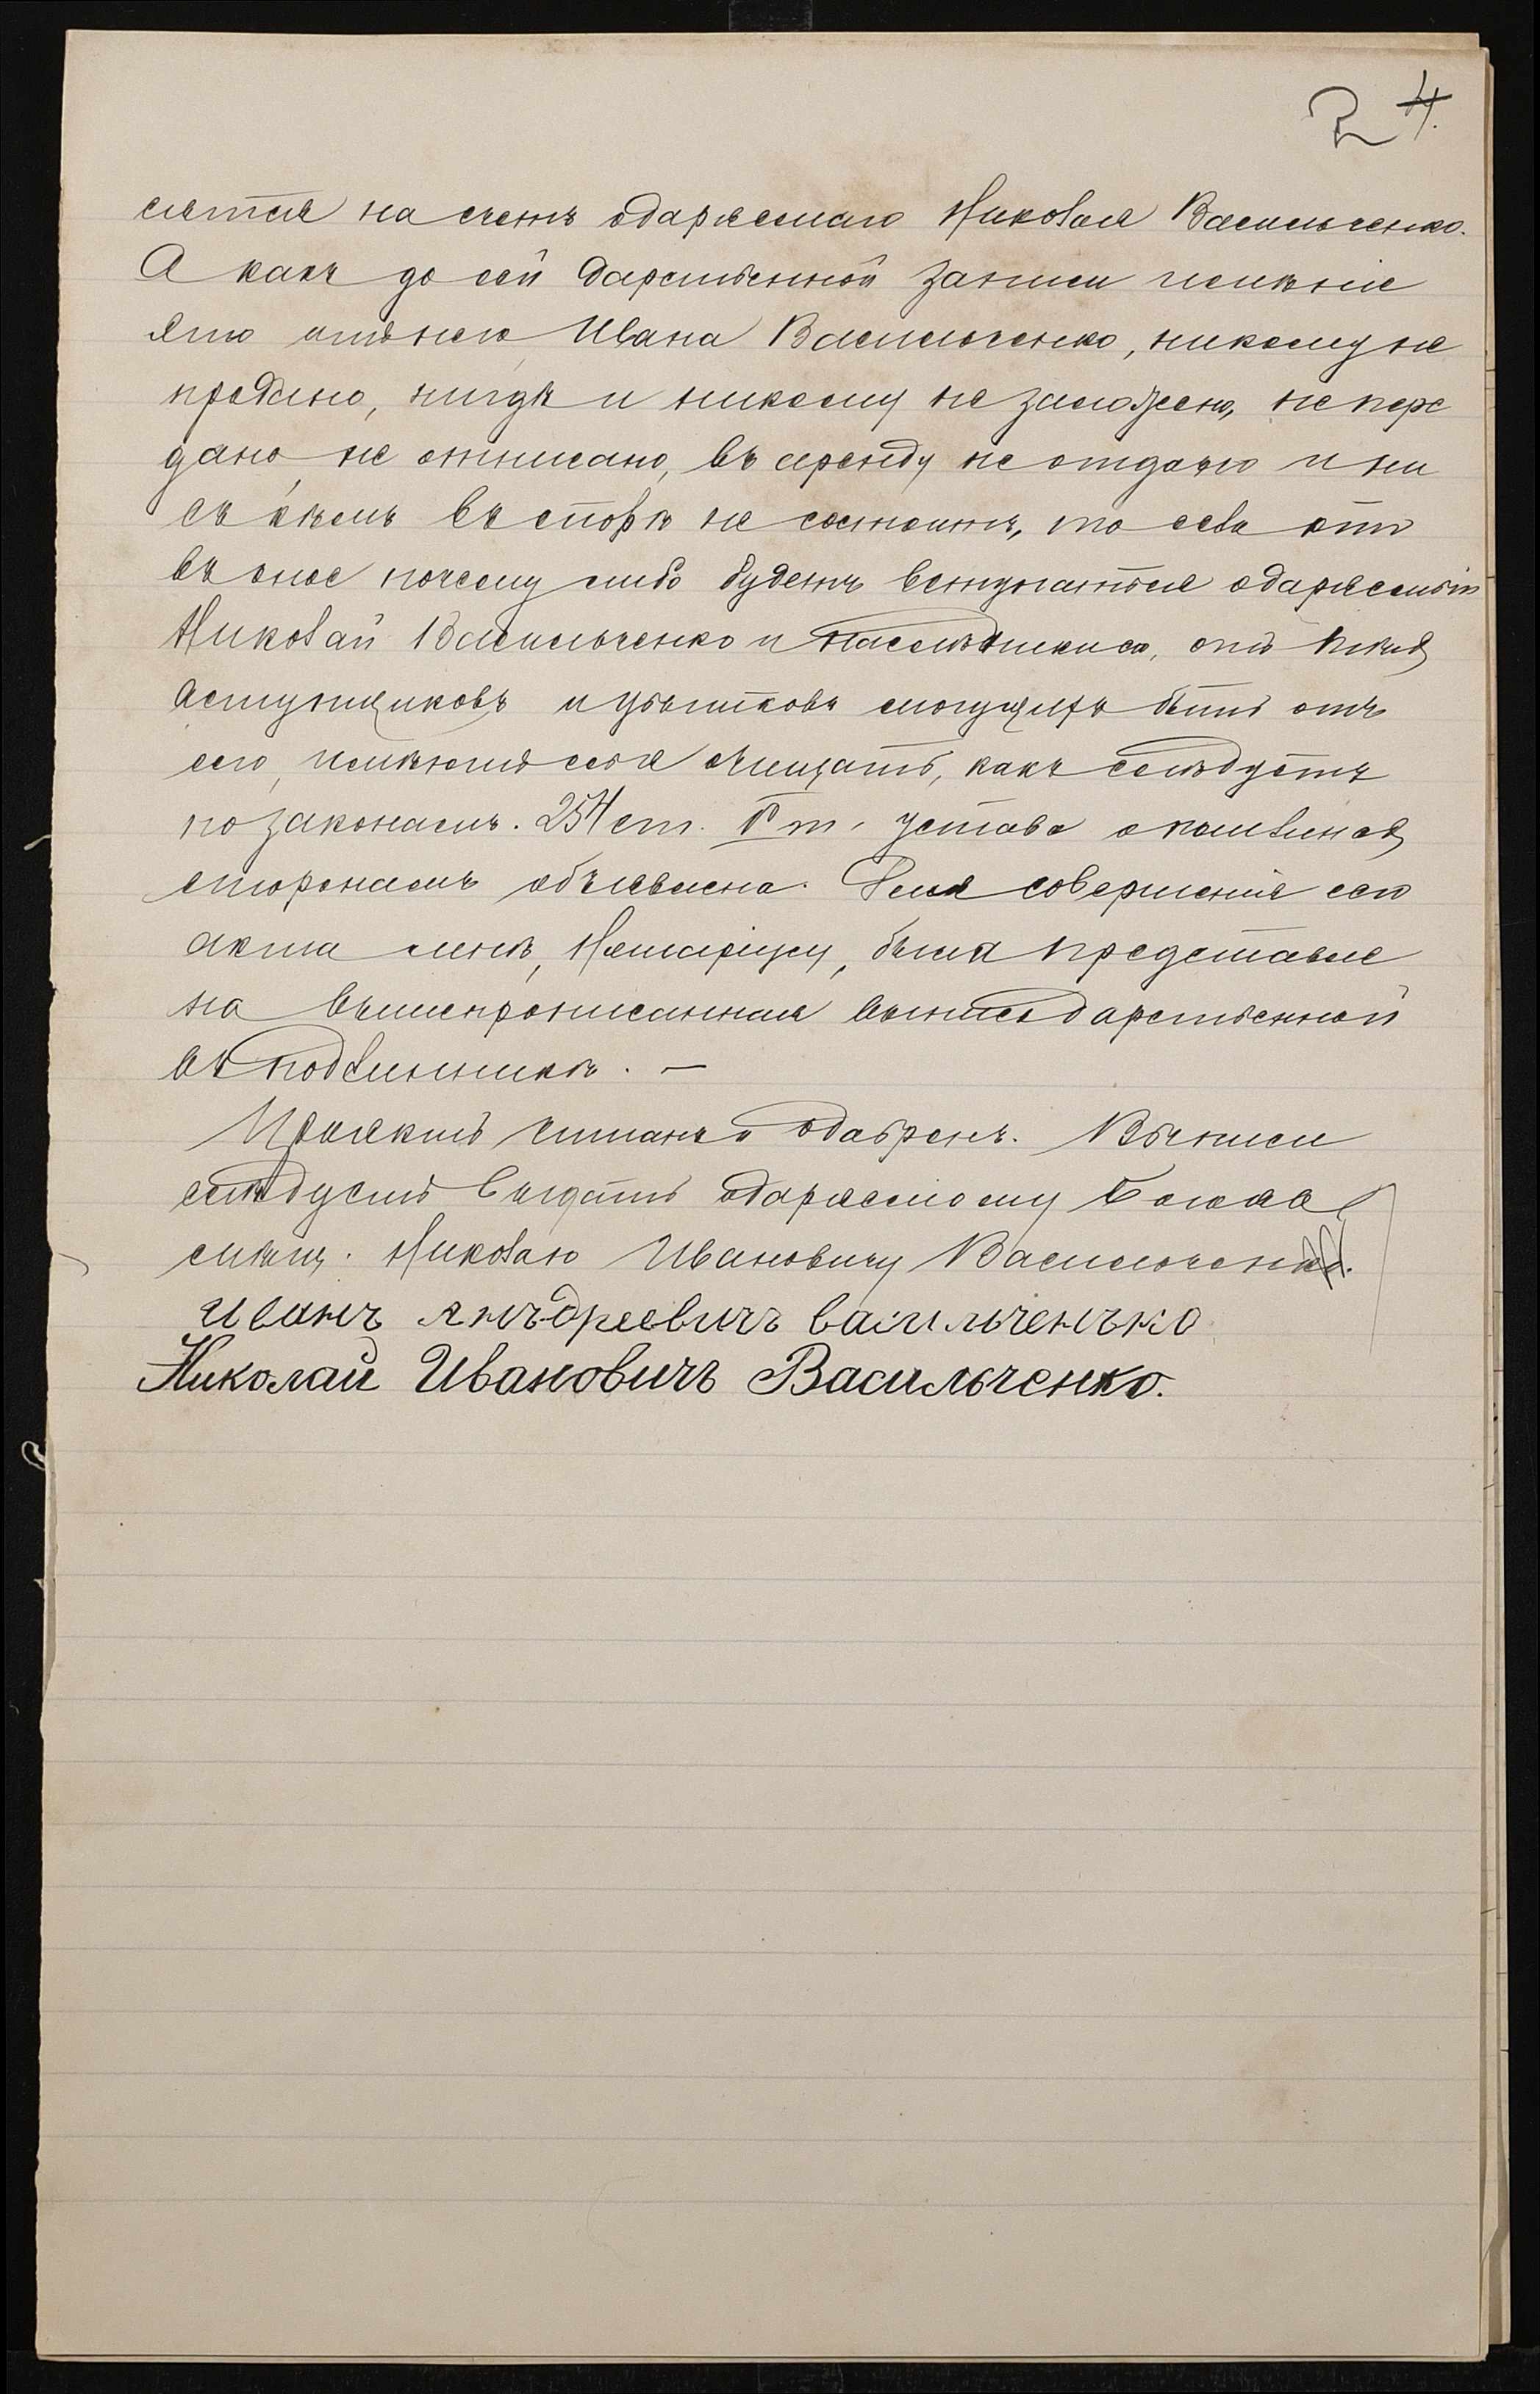 2 4.
сятся на счетъ одаряемаго Николая Васильченко.
А какъ до сей дарственной записи имѣніе
это отъ него Ивана Васильченко, никому не
продано, нигдѣ и никому не заложено, не пере
дано, не отписано, въ аренду не отдано и ни
съ кѣмъ въ спорѣ не состоитъ, то если кто
въ оное почему либо будетъ вступаться одаряемый
Николай Васильченко и наслѣдники его, отъ тѣхъ
вступщиковъ и убытковъ могущихъ быть отъ
сего, имѣютъ себя очищать, какъ слѣдуетъ
по законамъ. 254 ст. V т. устава о пошлинахъ
сторонамъ объявлена. Для совершенія сего
акта мнѣ, Нотаріусу, была представле
на вышепрописанная выпись дарственной
въ подлинникѣ. —
Проектъ читанъ и одобренъ. Выписи
слѣдуетъ выдать одаряемому
Николаю Ивановичу Васильченко.
Иванъ Анъдреевичъ васильченъко
Николай Ивановичъ Васильченко.